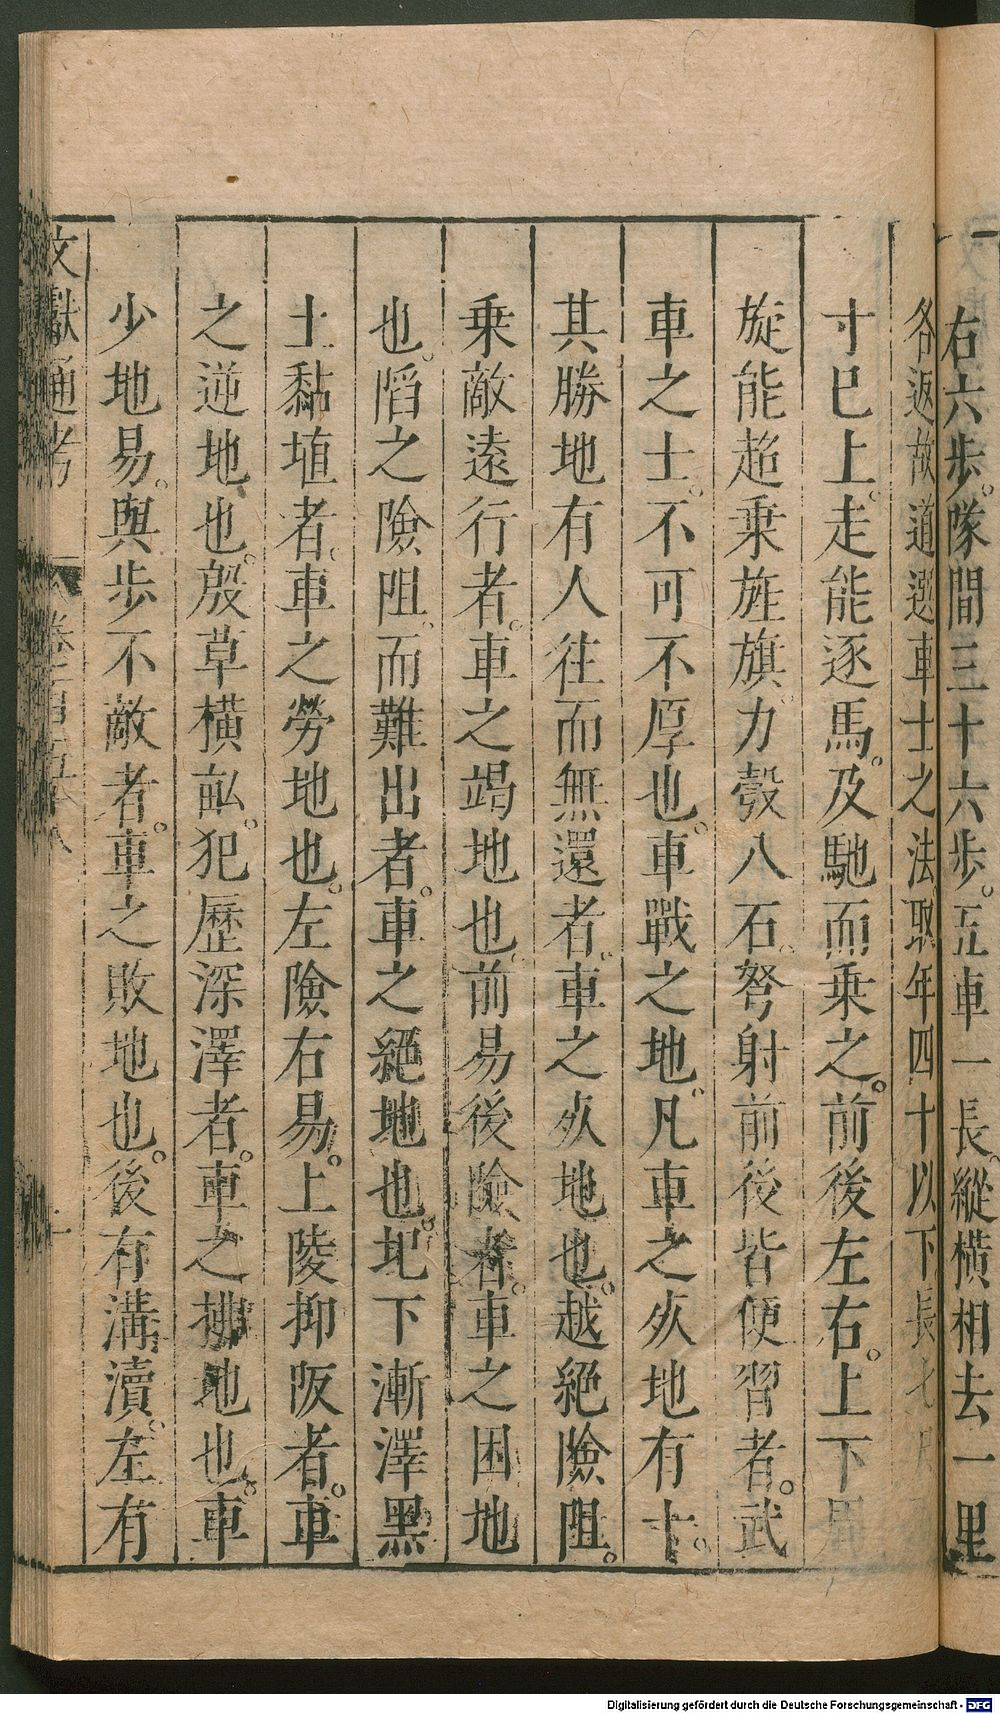 右六步隊間三十六步五車一長縱橫相去一里
各返故道選車士之法取年四十以下長七尺
寸已上走能逐馬及馳而乗之前後左右上下周
旋能超乗旌旗力彀八石弩射前後皆便習者武
車之士不可不厚也車戰之地凡車之死地有十
其勝地有八人往而無還者車之死地也越絕險阻
乗敵遠行者車之竭地也前易後險者車之困地
也陷之險阻而難出者車之絕地也圯下漸澤黑
土黏埴者車之勞地也左險右易上陵抑阪者車
之逆地也殷草橫畝犯歷深澤者車之拂地也車
少地易與步不敵者車之敗地也後有溝瀆左有
文獻通考 卷一百五十八 十
Digitalisierung gefördert durch die Deutsche Forschungsgemeinschaft - DFG